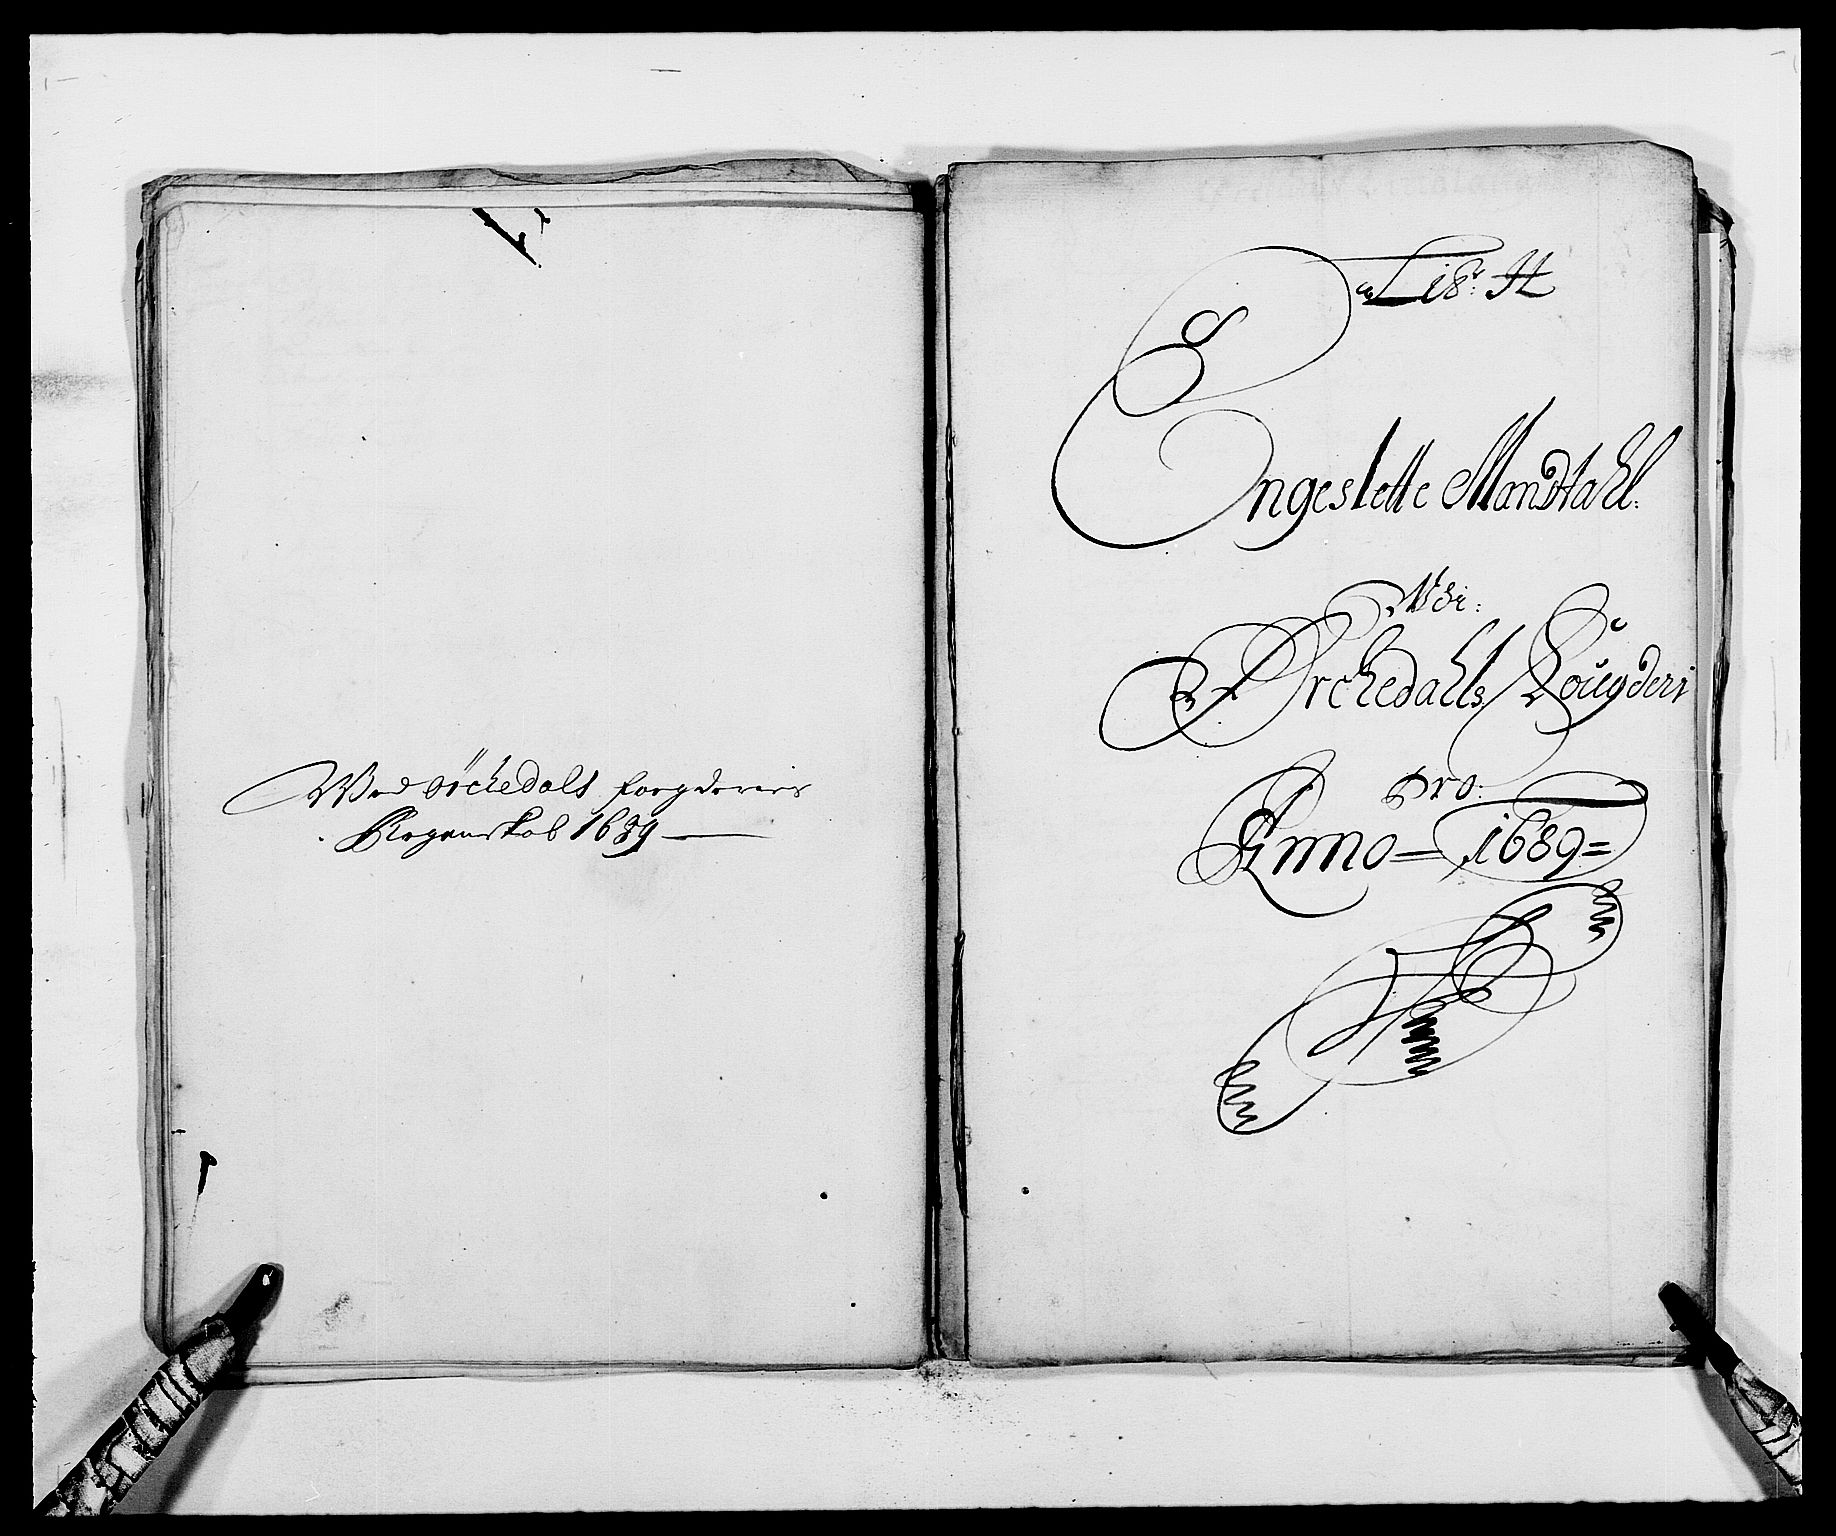 Ved Örchedals fougderies
Regenskab 1689
Litr: H
Engeslette Mandtahl:
Udi:
Örchedahls fougderi
Pro:
Anno = 1689 =